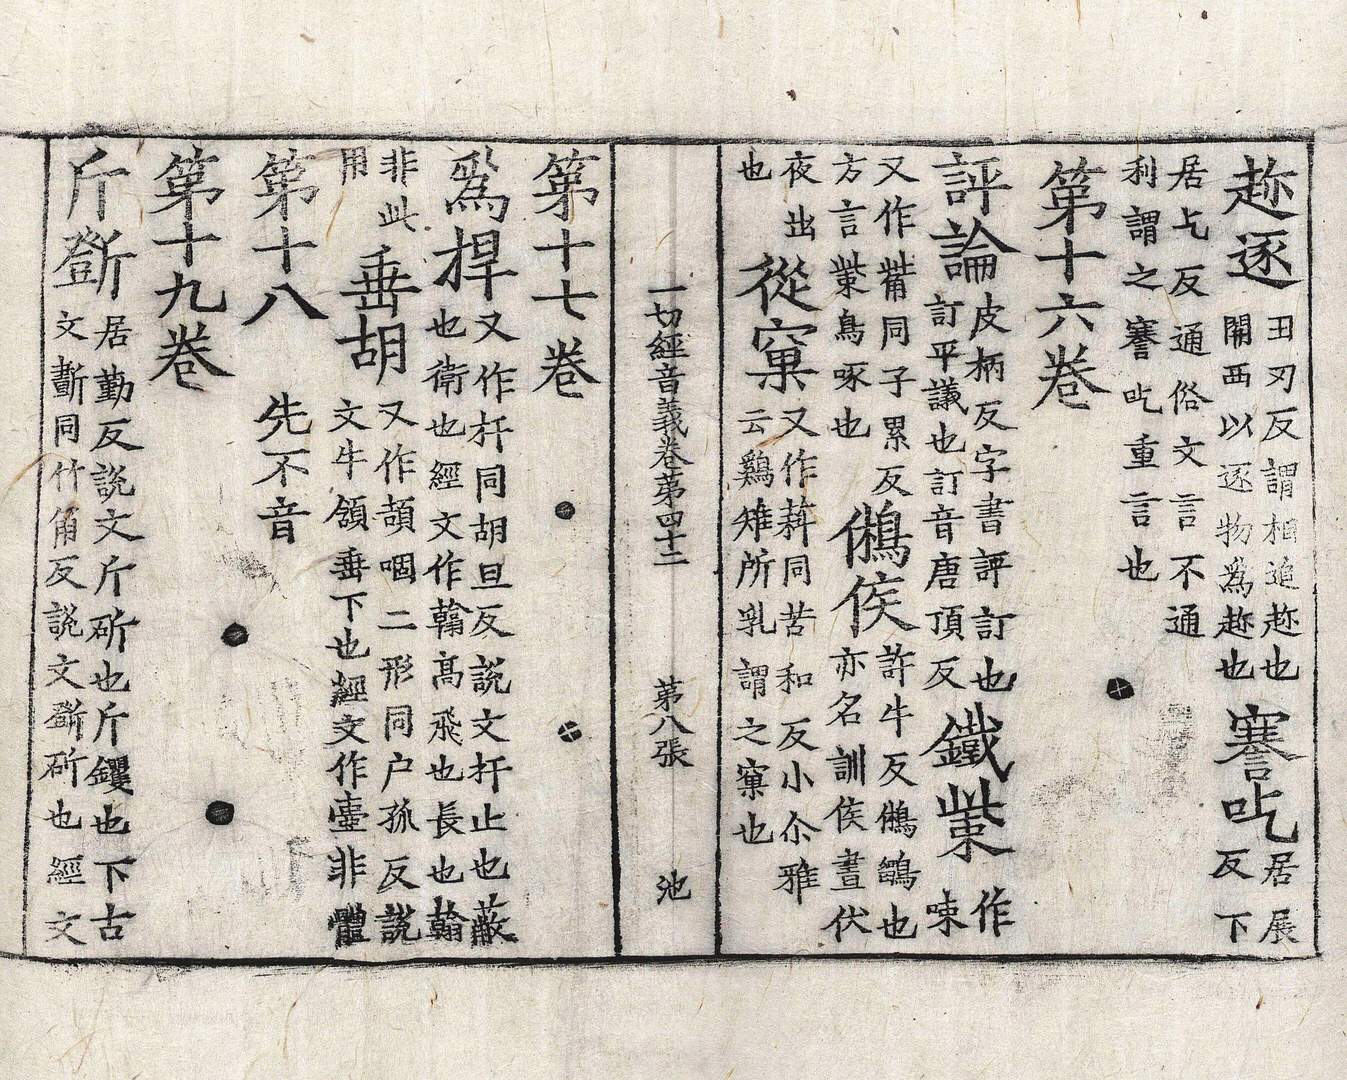 趂逐丑刃反謂相追趂也
關西以逐物爲趂也
謇吃居展
反下
居乞反通俗文言不通
利謂之謇吃重言也
第十六卷
評論皮柄反字書評訂也
訂平議也訂音唐頂反
鐵㭰作
㖩
又作觜同子累反
方言㭰鳥啄也
鵂侯許牛反鵂鶹也
亦名訓侯晝伏
夜出
也
從窠又作薖同苦和反小尒雅
云鷄雉所乳謂之窠也
一切經音義卷第四十二 第八張 池
第十七卷
爲捍又作扞同胡旦反說文扞止也蔽
也衛也經文作翰高飛也長也翰
非此
用
垂胡又作頡咽二形同户孤反說
文牛領垂下也經文作壷非體
第十八 先不音
第十九卷
斤斵居勤反說文斤斫也斤钁也下古
文斲同竹角反說文斵斫也經文